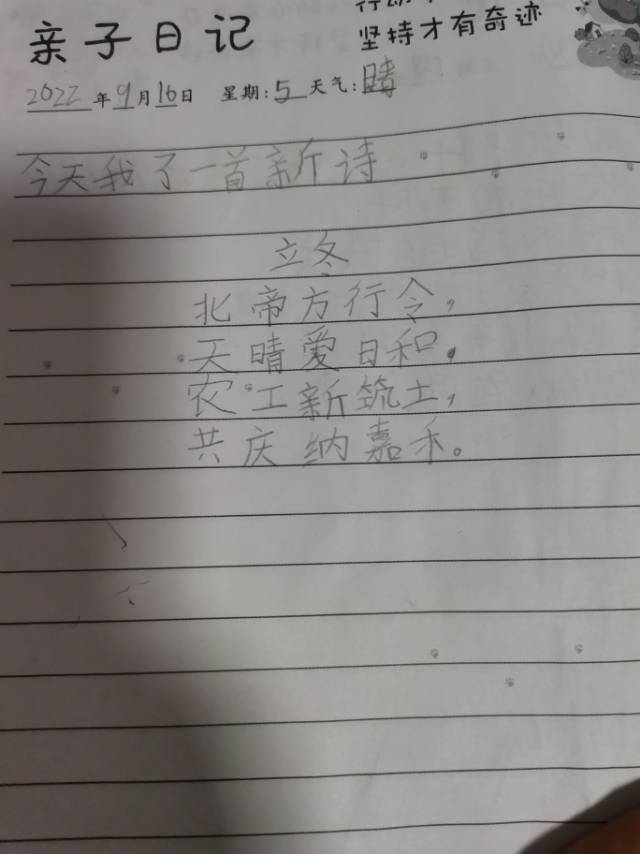 坚持才有奇迹
亲子日记
2022年9月16日 星期:5 天气:晴
今天我了一首新诗
立冬
北帝方行令,
天晴爱日和,
农工新筑土,
共庆纳嘉禾。